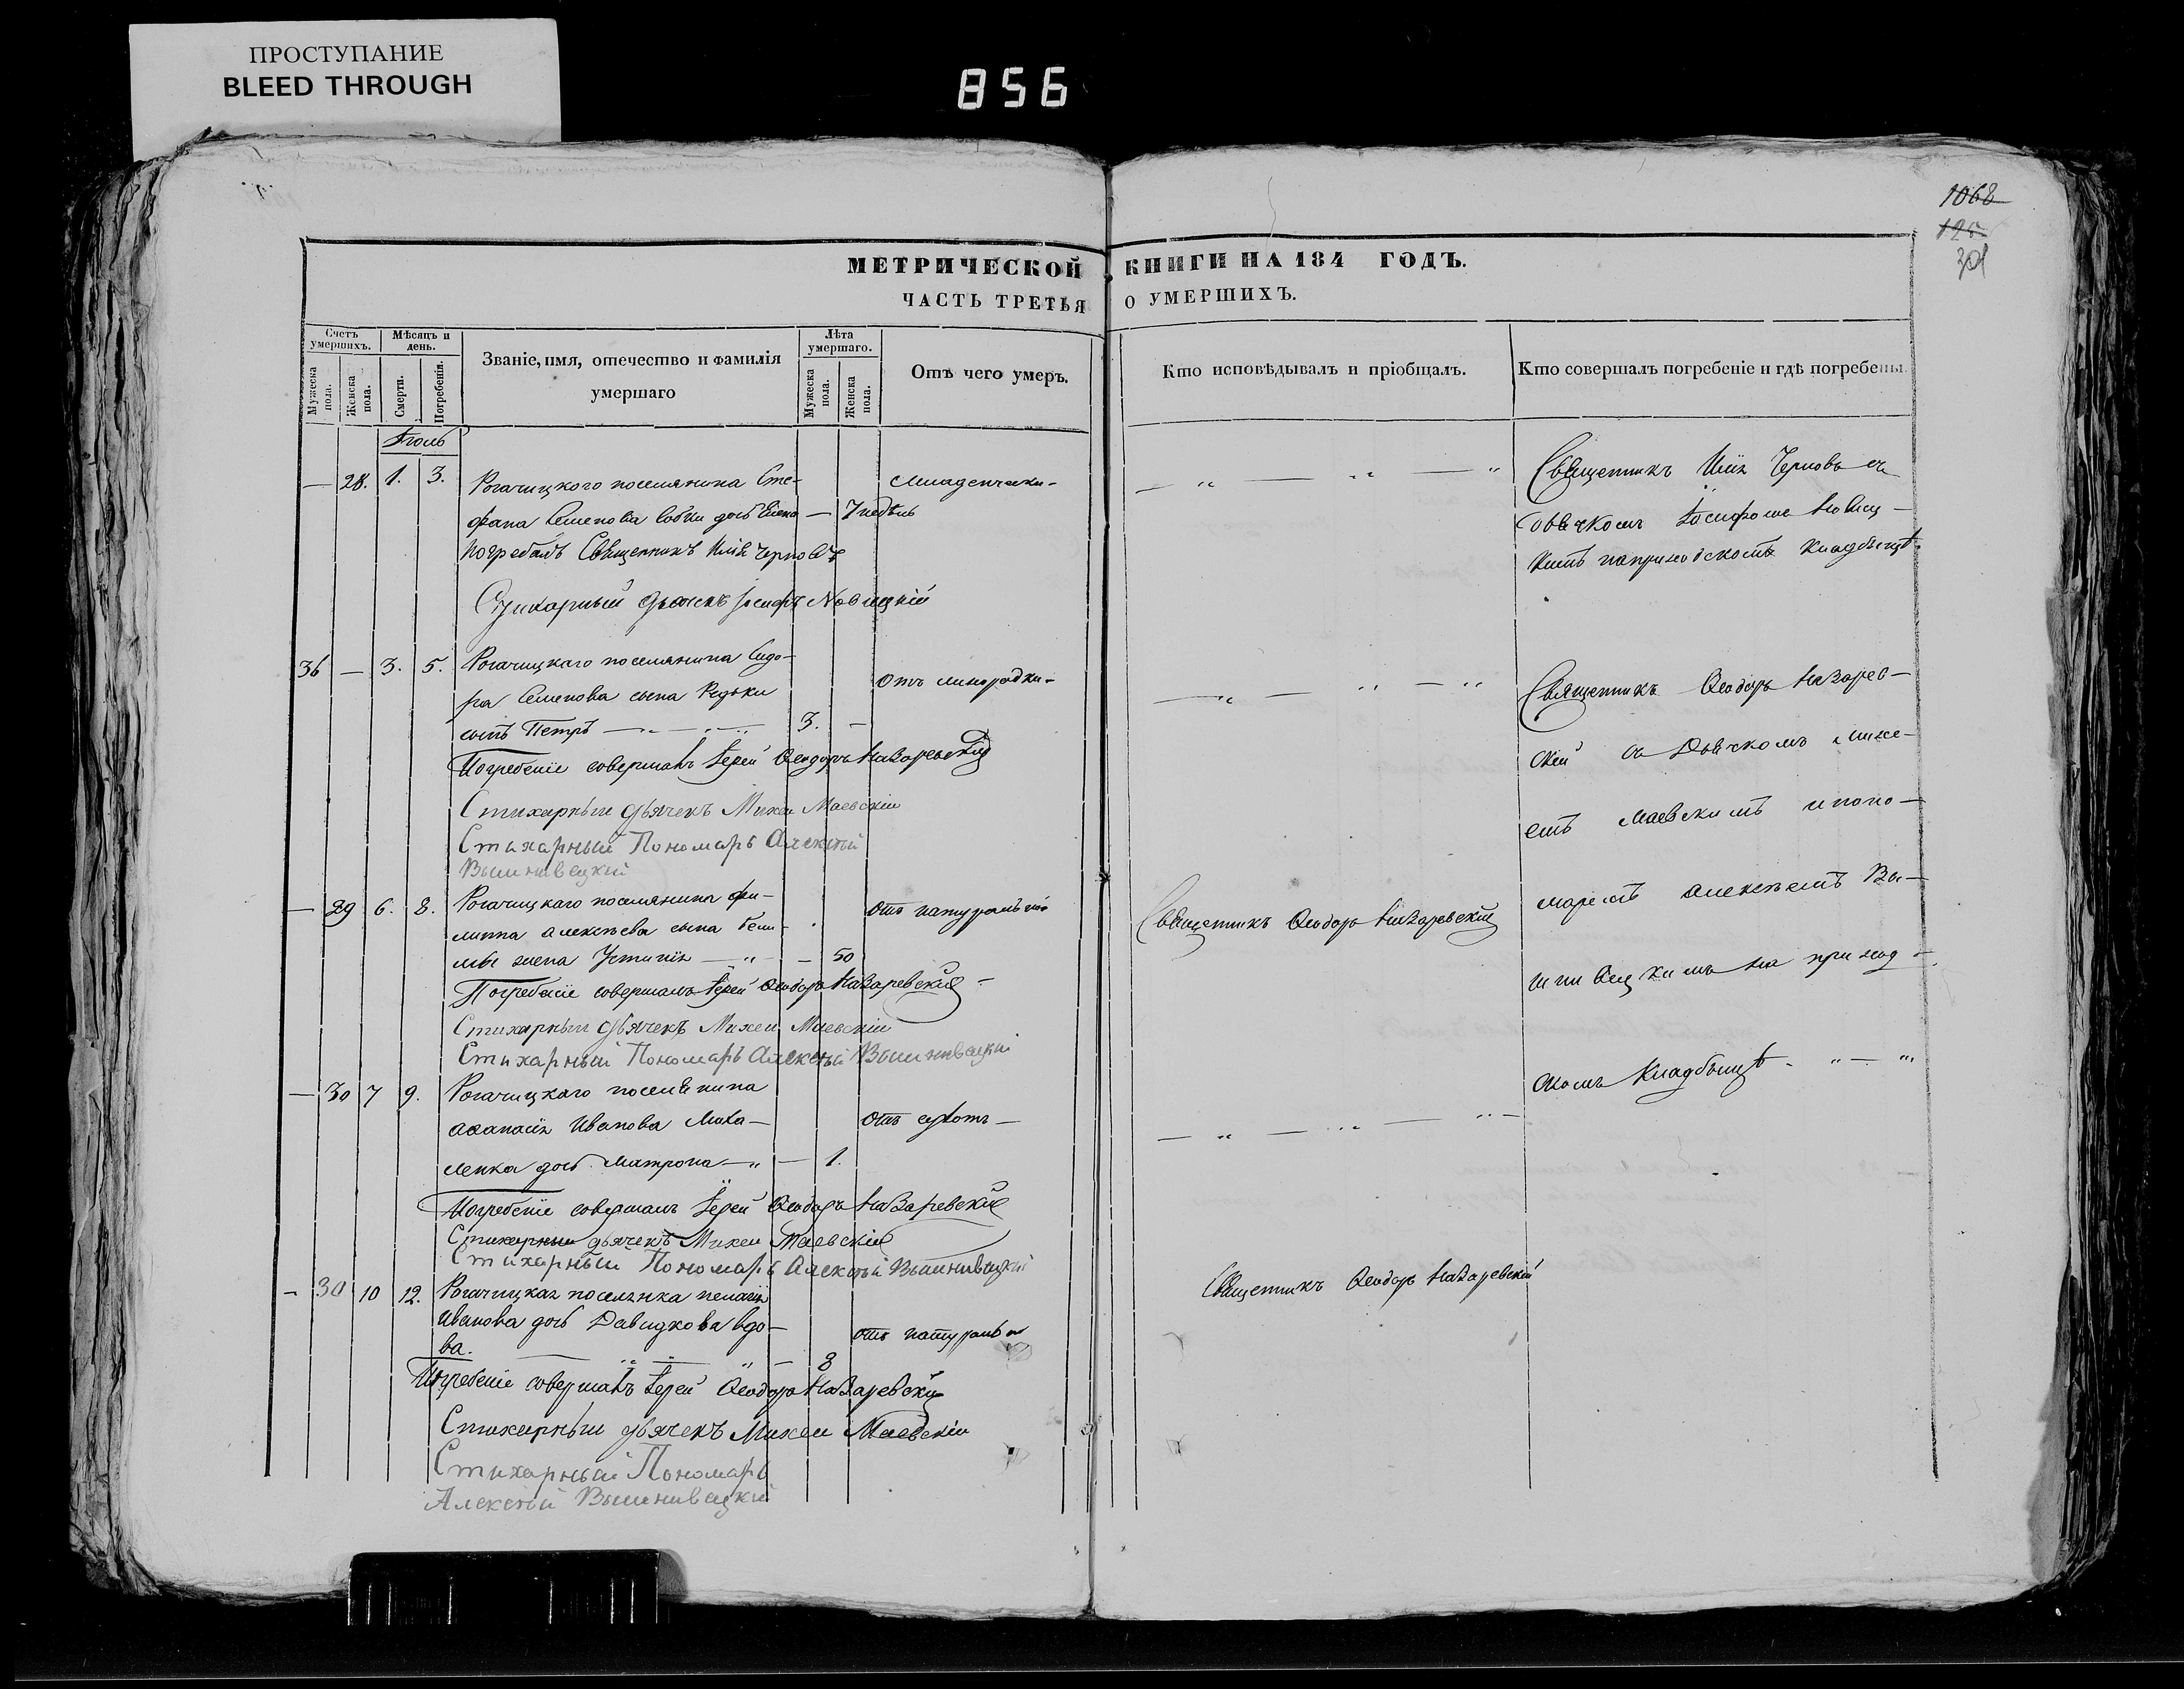 ПРОСТУПАНИЕ
BLEED THROUGH
856
1068
301
МЕТРИЧЕСКОЙ КНИГИ НА 184 ГОДЪ.
ЧАСТЬ ТРЕТЬЯ О УМЕРШИХЪ.
Счетъ умершихъ.
Мужеска пола.
Женска пола.
Мѣсяцъ и день.
Смерти.
Погребенія.
Званіе, имя, отечество и фамилія
умершаго
Лѣта умершаго.
Мужеска пола.
Женска пола.
Отъ чего умеръ.
Кто исповѣдывалъ и пріобщалъ.
Кто совершалъ погребеніе и гдѣ погребены.
Іюль
— 28. 1. 3. Рогачицкого поселянина Сте-
фана Семенова дочь Елена — 7 недѣль
младенчески-
погребалъ Священникъ Илія Черновъ
Стихарный дьячекъ Іосифъ Новицкій
Священникъ Илія Черновъ съ
Іосифомъ Новиц-
кимъ на приходскомъ кладбищѣ.
36 — 3. 5. Рогачицкаго поселянина Сидо-
ра Семенова сына Редьки
сынъ Петръ — 3. —
отъ лихорадки-
Погребеніе совершалъ Іерей Ѳеодоръ Назаревскій
Стихарный дьячекъ Михеи Маевскіи
Стихарный Пономарь Алексѣй
Вышнивецкій
Священникъ Ѳеодоръ Назарев-
скій съ Дьячкомъ Михе-
емъ Маевскимъ и поно-
маремъ Алексѣемъ Вы-
шнивецкимъ на приход-
скомъ кладбищѣ.
— 29 6. 8. Рогачицкаго поселянина Фи-
липпа Алексѣева сына
жена Устинія — 50
отъ натуральной
Погребеніе совершалъ Іерей Ѳеодоръ Назаревскій
Стихарныи дьячекъ Михеи Маевскіи
Стихарный Пономарь Алексѣй Вышнивецкій
Священникъ Ѳеодоръ Назаревскій
— 30 7 9. Рогачицкаго поселянина
Аѳанасія Иванова Миха-
ленка дочь Матрона — 1.
отъ сухотъ —
Погребеніе совершалъ Іерей Ѳеодоръ Назаревскій
Стихарныи дьячекъ Михеи Маевскій
Стихарный Пономарь Алексѣй Вышнивецкій
- 30 10 12. Рогачицкая поселянка Пелагія
Иванова дочь Давидкова вдо-
ва.
отъ натуральн
Погребеніе совершалъ Іерей Ѳеодоръ Назаревскій
Стихарныи дьячекъ Михеи Маевскіи
Стихарный Пономарь
Алексѣй Вышнивецкій
Священникъ Ѳеодоръ Назаревскій